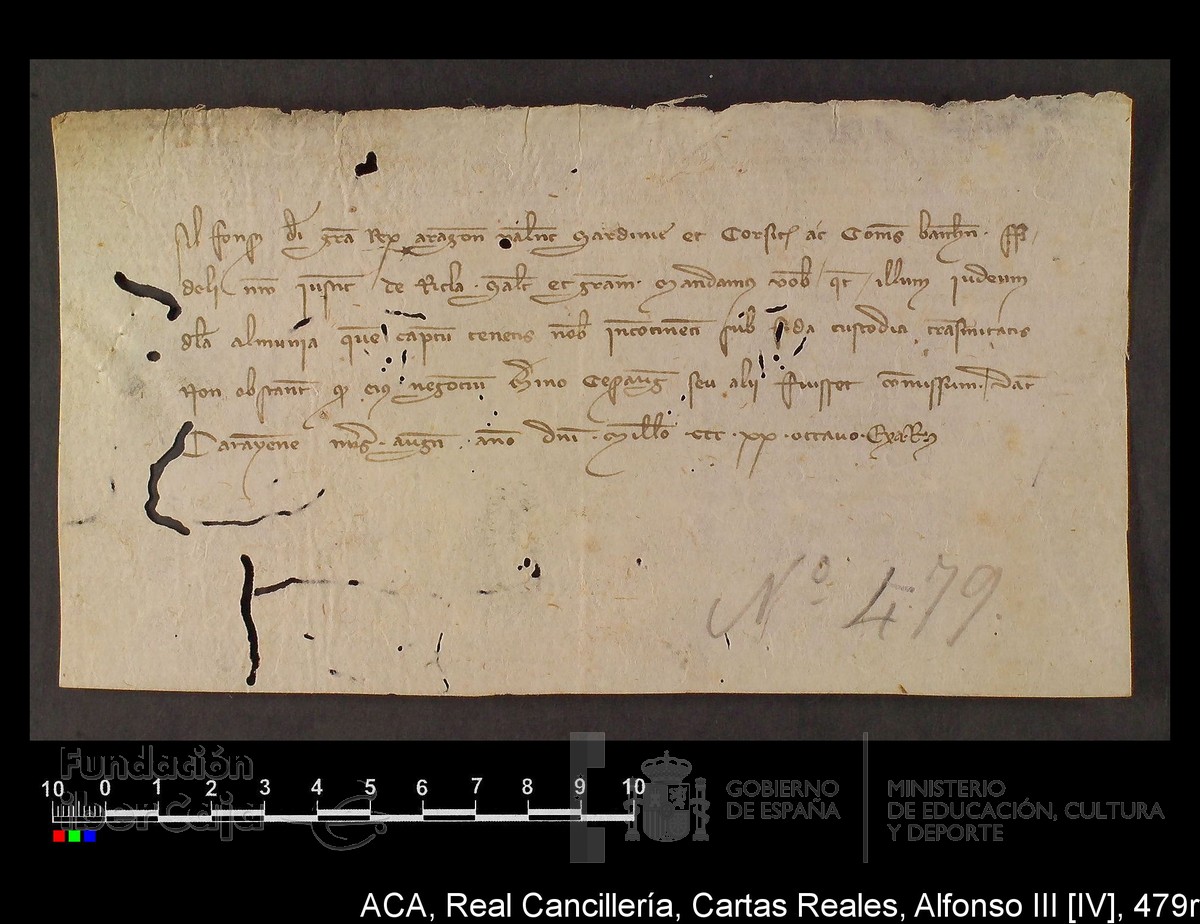 Alfonsus dei gra Rex aragon valent Sardinie et Corsice ac Comes barchn. ffi
deli nro iusticie de Ricla. Salt et gram. Mandamus vob qt illum iudeum
dela almunia quem captum tenetis nob incotinenti sub fida custodia trasmitatis
Non obstant qd eius negocium Cesaraug seu alii fuisset comissum. Dat
Tarayone augn. ano dni. Millo CCC. xx. octavo. Exa. Rx
Nº 479.
Fundación
iberCaja
10 0 1 2 3 4 5 6 7 8 9 10
GOBIERNO
DE ESPAÑA
MINISTERIO
DE EDUCACIÓN, CULTURA
Y DEPORTE
ACA, Real Cancillería, Cartas Reales, Alfonso III [IV], 479r